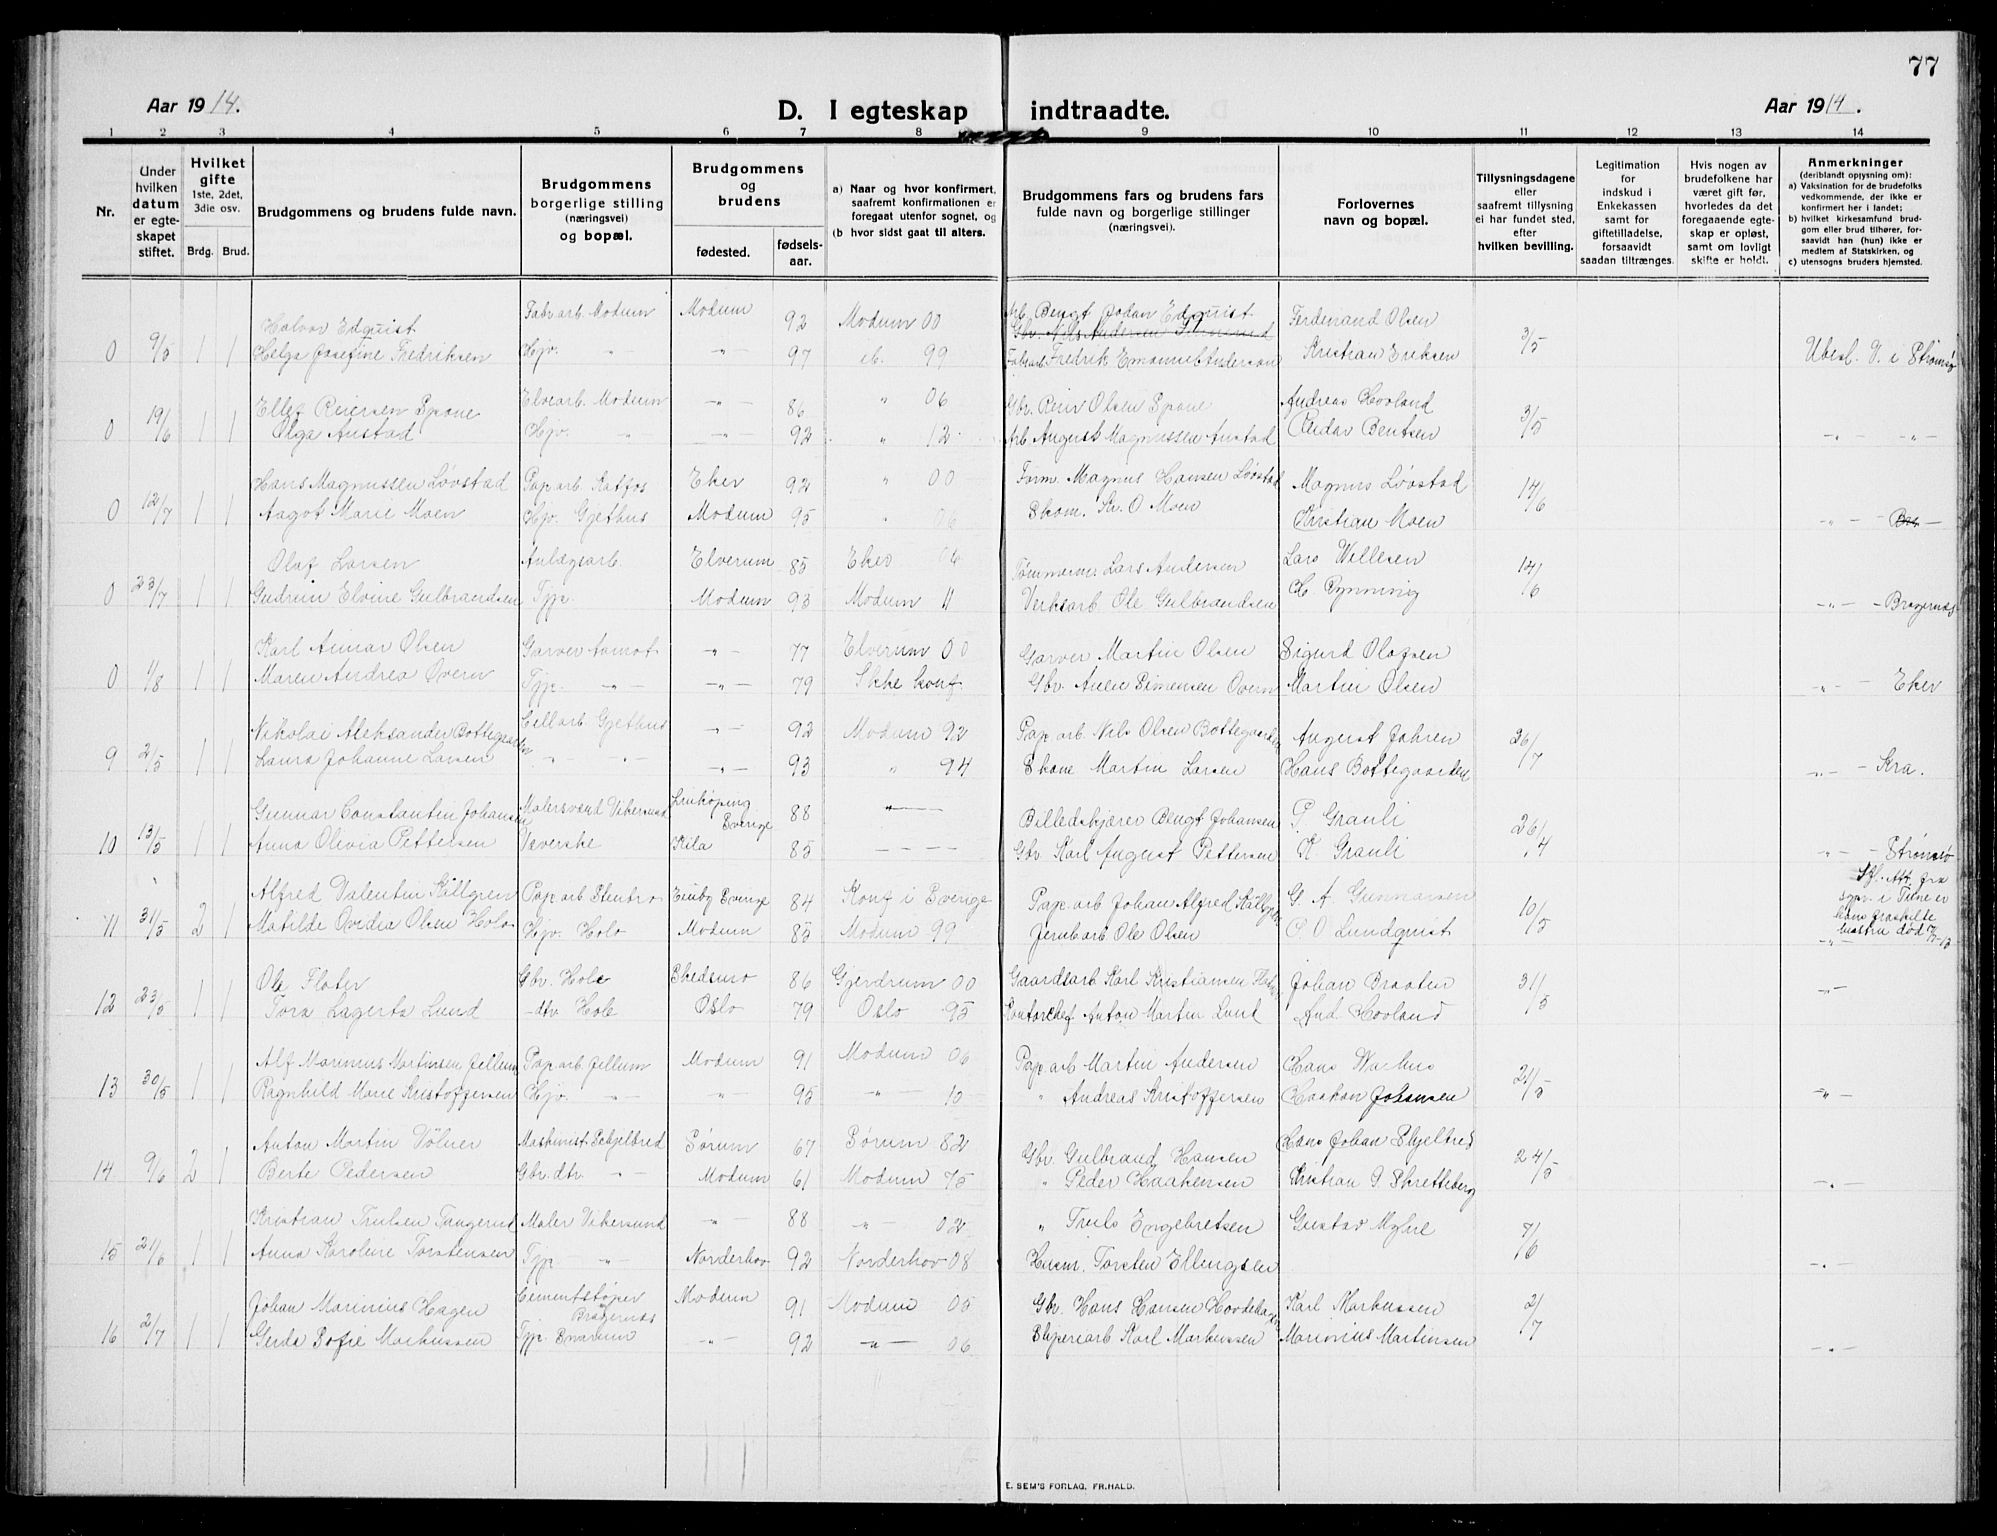 77
Aar 1914.
D. I egteskap indtraadte.
Aar 1914.
1 2 3 4 5 6 7 8 9 10 11 12 13 14
Nr.
Under hvilken datum er egteskapet stiftet.
Hvilket gifte 1ste, 2det, 3die osv.
Brdg. Brud.
Brudgommens og brudens fulde navn.
Brudgommens borgerlige stilling (næringsvei) og bopæl.
Brudgommens og brudens
fødested. fødselsaar.
a) Naar og hvor konfirmert, saafremt konfirmationen er foregaat utenfor sognet, og
(b hvor sidst gaat til alters.
Brudgommens fars og brudens fars fulde navn og borgerlige stillinger (næringsvei).
Forlovernes navn og bopæl.
Tillysningsdagene eller saafremt tillysning ei har fundet sted, efter hvilken bevilling.
Legitimation for indskud i Enkekassen samt for giftetilladelse, forsaavidt saadan tiltrænges.
Hvis nogen av brudefolkene har været gift før, hvorledes da det foregaaende egteskap er opløst, samt om lovligt skifte er holdt.
Anmerkninger (deriblandt opysning om):
a) Vaksination for de brudefolks vedkommende, der ikke er konfirmert her i landet;
b) hvilket kirkesamfund brudgom eller brud tilhører, forsaavidt han (hun) ikke er medlem af Statskirken, og
c) utensogns bruders hjemsted.
Halvor Edquist Fabrarb. Modum Modum 92 Modum 00 Arb Bengt Johan Edquist Ferdinand Olsen
0 9/5 1 1 Helga Josefine Fredriksen Hjv. " - " - 97 eb. 99 Fabrarb Fredrik Emanuel Anderson Kristian Eriksen 3/5 Ubesl. V. i Strømsø
Ellef Reiersen Spone Elvearb. Modum - " - 86 " 06 Gbr. Reier Olsen Spone Andreas Hovland
0 19/6 1 1 Olga Austad Hjv. - " - 92 " 12 Arb August Magnussen Austad Peder Bentsen 3/5 - " - " -
Hans Magnussen Løvstad Pap.arb. Katfos Eker 92 " 00 Form. Magnus Hansen Løvstad Magnus Løvstad
0 12/7 1 1 Aagot Marie Moen Hjv. Gjethus Modum 95 " 06 Skom. Kr. O Moen Kristian Moen 14/6 - " -
Olaf Larsen Anlægsarb. Elverum 85 Eker 04 Tømmerm. Lars Andersen Lars Willesen
0 23/7 1 1 Gudrun Elvine Gulbrandsen Tjp. Modum 93 Modum 11 Verksarb Ole Gulbrandsen 14/6 - " - Bragernæs
Karl Annar Olsen Garver Aamot - " - 77 Elverum 00 Garver Martin Olsen Sigurd Olafsen
0 1/8 1 1 Maren Andrea Overn Tjp. - " - 79 Ikke konf. Gbr. Simensen Overn Martin Olsen - " - Eker
Nikolai Aleksander Bottegaarden Cell arb Gjethus - " - 92 Modum 92 Pap. arb Nils Olsen Bottegaarden August Johren
9 2/5 1 1 Laura Johanne Larsen - " - - " - 93 " 94 Martin Larsen Hans Bottegaarden 26/7 - " - Kra.
Gunnar Constantin Johansen Malersvend Vikersund Linköping Sverige 88 - " - Billedskjærer Bengt Johansen P. Grauli
10 13/5 1 1 Anna Olivia Pettersen Væverske Kila 85 - - - - Gbr. Karl August Pettersen K. Grauli 26/4 - " - Strømsø
Alfred Valentin Källgren Pap. arb Stenbro Sverige 84 Konf i Sverige Pap. arb Johan Alfred Källgren G. A. Gunnarsen
11 31/5 2 1 Matilde Ovidia Olsen Holo Hjv. Holo Modum 85 Modum 99 Jernb arb Ole Olsen C. O Lundquist 10/5 Att. fra spr. i er hans fraskilte hustru død
Ole Flater Gbr. Hole Skedsmo 86 Gjerdrum 00 Gaardsarb Karl Kristiansen Flater Johan Braaten
12 23/5 1 1 Tora Lagerta Lund - dtr. Hole Oslo 79 Oslo 95 Kontorchef Anton Martin Lund And Hovland 31/5 - " -
Alf Marinius Martinsen Jellum Pap. arb. Jellum Modum 91 Modum 06 Pap. arb Martin Andersen Hans
13 30/5 1 1 Ragnhild Marie Kristoffersen Hjv. - " - " 95 - " - 10 " Andreas Kristoffersen Haakon Johansen 21/5 - " -
Anton Martin Völner Maskinist Skjelbred Sørum 67 Sørum 82 Gbr. Gulbrand Hansen Hans Johan Skjelbred
14 9/6 2 1 Berte Pedersen Gbr. dtr. - " - Modum 61 Modum 75 " Peder Haakensen Kristian G. Skretteberg 24/5 - " -
Kristian Trulsen Tangerud Maler Vikersund - " - 88 - " - 02 " Truls Engebretsen Gustav Myhre
15 21/6 1 1 Anna Karoline Torstensen Tjp. - " - Norderhov 92 Norderhov 08 Husm. Torsten Ellingsen 7/6 - " -
Johan Marinius Hagen Cementstøper Bragernæs Modum 91 Modum 05 Gbr. Hans Hansen Hovdehagen Karl Markussen
16 2/7 1 1 Gerda Sofie Markussen Tjp. Snarum - " - 92 - " - 06 Sliperiarb Karl Markussen Marinius Martinsen 2/7 - " -
E. SEM'S FORLAG, FR.HALD.